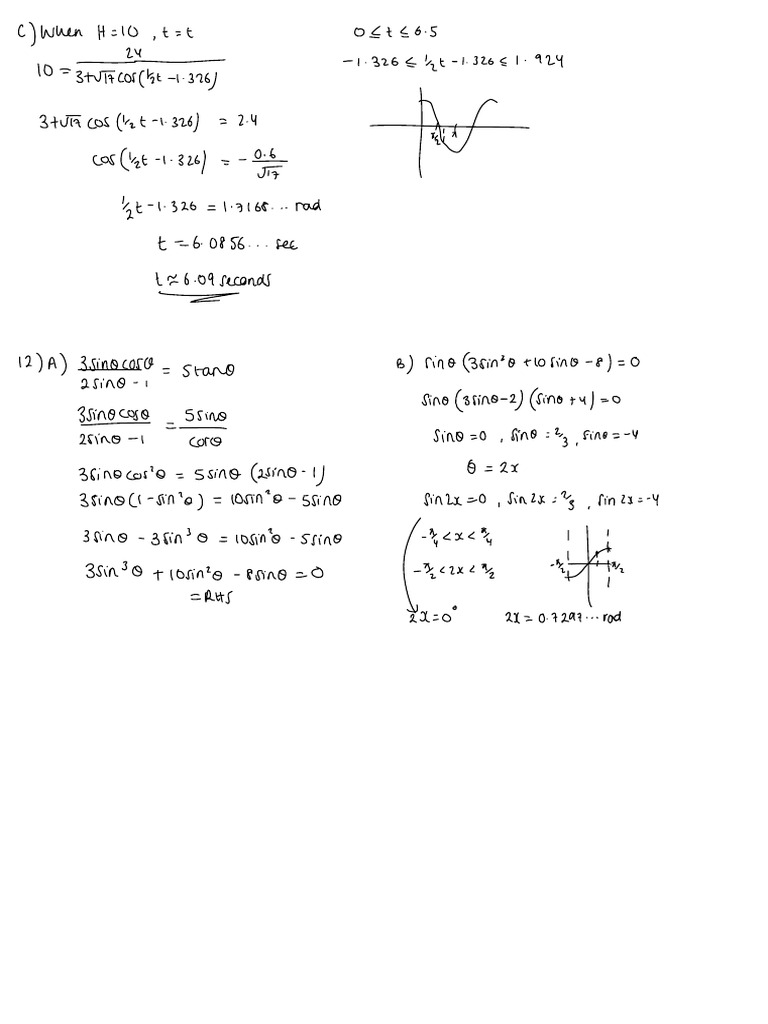 C) When H=10 , t=t
10 = 24/(3+√17 cos(½t −1.326))
3+√17 cos (½t −1.326) = 2.4
cos (½t −1.326) = − 0.6/√17
½t −1.326 = 1.7168... rad
t = 6.0856... sec
t ≈ 6.09 seconds
0 ≤ t ≤ 6.5
−1.326 ≤ ½t −1.326 ≤ 1.924
π/2 π
12) A) 3sinθcosθ/(2sinθ −1) = 5tanθ
3sinθcosθ/(2sinθ −1) = 5sinθ/cosθ
3sinθcos²θ = 5sinθ (2sinθ −1)
3sinθ(1−sin²θ) = 10sin²θ − 5sinθ
3sinθ − 3sin³θ = 10sin²θ − 5sinθ
3sin³θ + 10sin²θ − 8sinθ = 0
= RHS
B) sinθ (3sin²θ +10sinθ −8) = 0
sinθ (3sinθ−2) (sinθ +4) = 0
sinθ =0 , sinθ = 2/3 , sinθ = −4
θ = 2x
sin2x =0 , sin2x = 2/3 , sin2x = −4
−π/4 < x < π/4
−π/2 < 2x < π/2
−π/2 π/2
2x = 0° 2x = 0.7297... rad